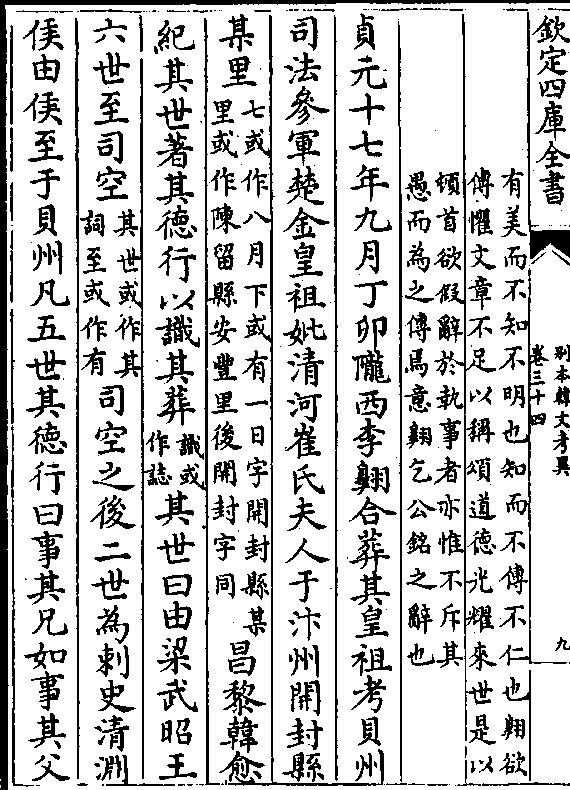 欽定四庫全書
別本韓文考異
卷三十四
九
有美而不知不明也知而不傳不仁也翺欲
傳懼文章不足以稱頌道德光耀來世是以
頓首欲假辭於執事者亦惟不斥其
愚而為之傳焉意翺乞公銘之辭也
貞元十七年九月丁卯隴西李翺合葬其皇祖考貝州
司法參軍楚金皇祖妣清河崔氏夫人于汴州開封縣
某里七或作八月下或有一日字開封縣某里或作陳留縣安豐里後開封字同昌黎韓愈
紀其世著其德行以識其葬識或作誌其世曰由梁武昭王
六世至司空其世或作其詞至或作有司空之後二世為刺史清淵
侯由侯至于貝州凡五世其德行曰事其兄如事其父